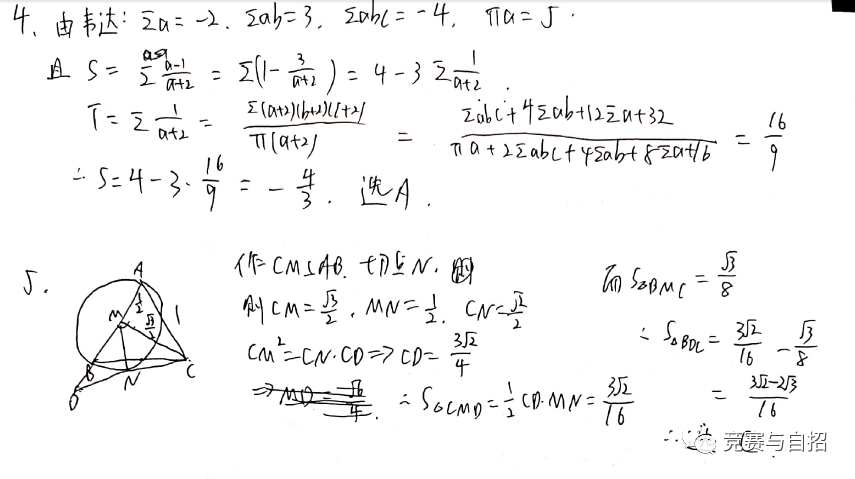 4、由韦达: Σa=-2, Σab=3, Σabc=-4, πa=5.
且 S= Σ (a-1)/(a+2) = Σ(1- 3/(a+2)) = 4-3 Σ 1/(a+2).
T= Σ 1/(a+2) = Σ(a+2)(b+2)(c+2)/π(a+2) = (Σabc+4Σab+12Σa+32)/(πa+2Σabc+4Σab+8Σa+16) = 16/9
∴ S=4-3· 16/9 = - 4/3. 选A.
5.
A
M
1/2
√3/2
1
B
N
C
D
作CM⊥AB. 切点N.
则CM= √3/2, MN= 1/2, CN= √2/2
CM²=CN·CD⇒CD= 3√2/4
∴ S△CMD= 1/2 CD·MN= 3√2/16
而S△BMC = √3/8
∴ S△BDC= 3√2/16 - √3/8
= (3√2-2√3)/16
∴选C.
竞赛与自招